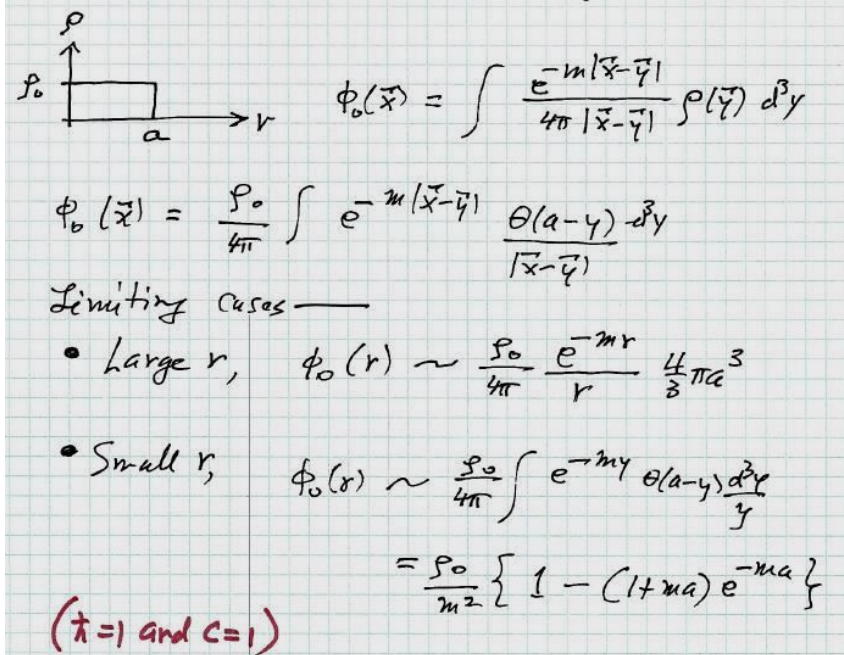 ρ
ρ₀
a
r
ϕ₀(x⃗) = ∫ e^{-m|x⃗-y⃗|} / (4π |x⃗-y⃗|) ρ(y⃗) d³y
ϕ₀(x⃗) = ρ₀/4π ∫ e^{-m|x⃗-y⃗|} θ(a-y) d³y / |x⃗-y⃗|
Limiting cases —
• Large r, ϕ₀(r) ~ ρ₀/4π e^{-mr}/r 4/3 πa³
• Small r, ϕ₀(r) ~ ρ₀/4π ∫ e^{-my} θ(a-y) d³y/y
= ρ₀/m² { 1 - (1+ma) e^{-ma} }
(ħ=1 and c=1)